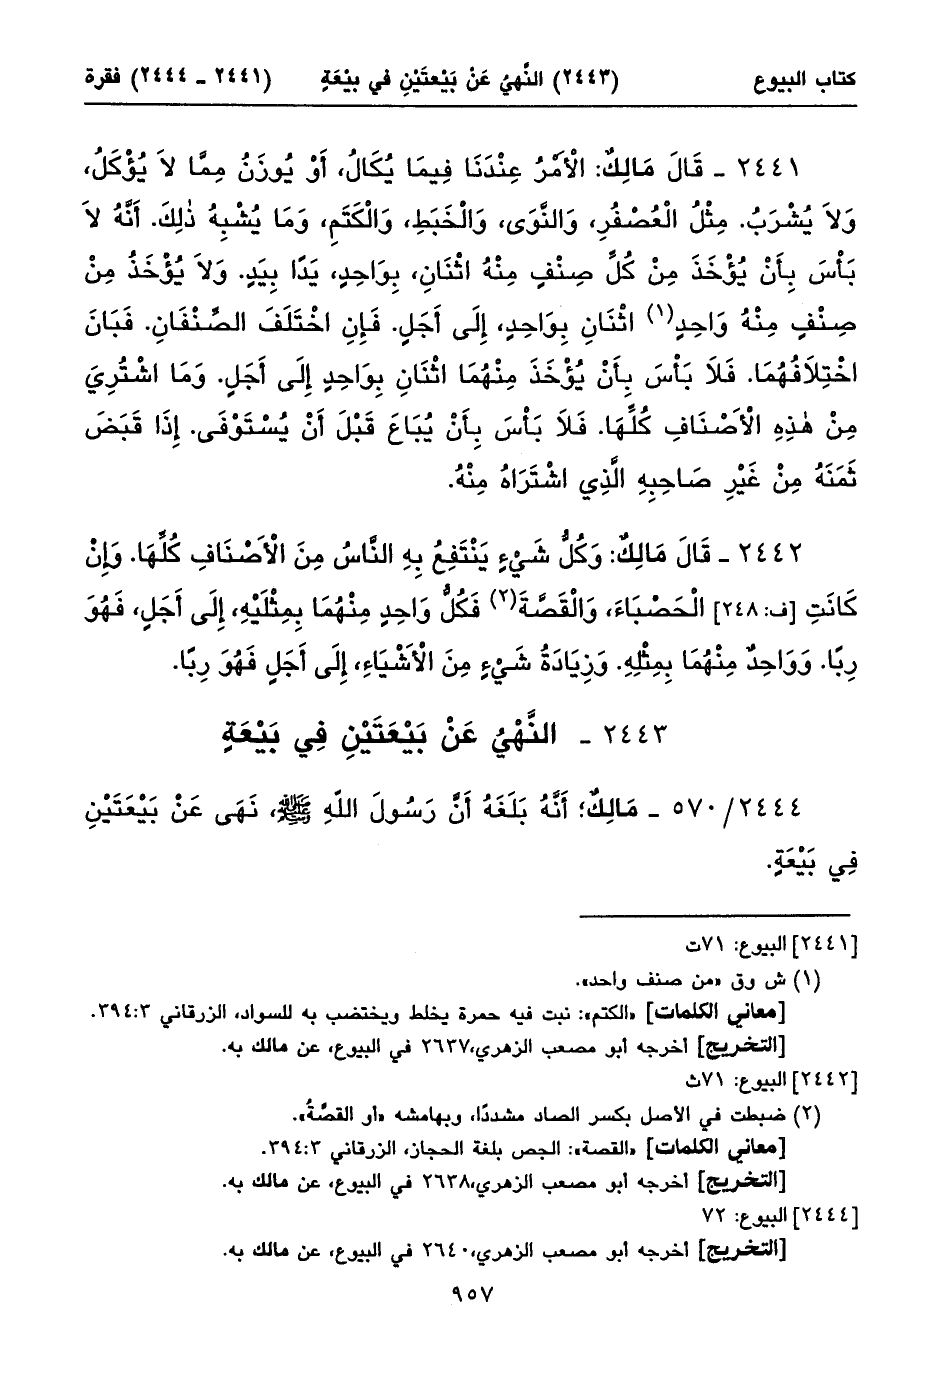 كتاب البيوع (٢٤٤٣) النَّهيُ عَنْ بَيْعتَيْنِ في بيْعَةٍ (٢٤٤١ - ٢٤٤٤) فقرة
٢٤٤١ - قَالَ مَالِكٌ: الْأَمْرُ عِنْدَنَا فِيمَا يُكَالُ، أَوْ يُوزَنُ مِمَّا لاَ يُؤْكَلُ،
وَلاَ يُشْرَبُ. مِثْلُ الْعُصْفُرِ، وَالنَّوَى، وَالْخَبَطِ، وَالْكَتَمِ، وَمَا يُشْبِهُ ذٰلِكَ. أَنَّهُ لاَ
بَأْسَ بِأَنْ يُؤْخَذَ مِنْ كُلِّ صِنْفٍ مِنْهُ اثْنَانِ، بِوَاحِدٍ، يَدًا بِيَدٍ. وَلاَ يُؤْخَذُ مِنْ
صِنْفٍ مِنْهُ وَاحِدٍ(١) اثْنَانِ بِوَاحِدٍ، إِلَى أَجَلٍ. فَإِنِ اخْتَلَفَ الصِّنْفَانِ. فَبَانَ
اخْتِلَافُهُمَا. فَلاَ بَأْسَ بِأَنْ يُؤْخَذَ مِنْهُمَا اثْنَانِ بِوَاحِدٍ إِلَى أَجَلٍ. وَمَا اشْتُرِيَ
مِنْ هٰذِهِ الْأَصْنَافِ كُلِّهَا. فَلاَ بَأْسَ بِأَنْ يُبَاعَ قَبْلَ أَنْ يُسْتَوْفَى. إِذَا قَبَضَ
ثَمَنَهُ مِنْ غَيْرِ صَاحِبِهِ الَّذِي اشْتَرَاهُ مِنْهُ.
٢٤٤٢ - قَالَ مَالِكٌ: وَكُلُّ شَيْءٍ يَنْتَفِعُ بِهِ النَّاسُ مِنَ الْأَصْنَافِ كُلِّهَا. وَإِنْ
كَانَتِ [ف: ٢٤٨] الْحَصْبَاءَ، وَالْقَصَّةَ(٢) فَكُلُّ وَاحِدٍ مِنْهُمَا بِمِثْلَيْهِ، إِلَى أَجَلٍ، فَهُوَ
رِبًا. وَوَاحِدٌ مِنْهُمَا بِمِثْلِهِ. وَزِيَادَةُ شَيْءٍ مِنَ الْأَشْيَاءِ، إِلَى أَجَلٍ فَهُوَ رِبًا.
٢٤٤٣ - النَّهْيُ عَنْ بَيْعَتَيْنِ فِي بَيْعَةٍ
٢٤٤٤/ ٥٧٠ - مَالِكٌ؛ أَنَّهُ بَلَغَهُ أَنَّ رَسُولَ اللّهِ ﷺ، نَهَى عَنْ بَيْعَتَيْنِ
فِي بَيْعَةٍ.
[٢٤٤١] البيوع: ٧١ت
(١) ش وق «من صنف واحد».
[معاني الكلمات] «الكتم»: نبت فيه حمرة يخلط ويختضب به للسواد، الزرقاني ٣٩٤:٣.
[التخريج] أخرجه أبو مصعب الزهري،٢٦٣٧ في البيوع، عن مالك به.
[٢٤٤٢] البيوع: ٧١ث
(٢) ضبطت في الأصل بكسر الصاد مشددًا، وبهامشه «أو القصَّةُ».
[معاني الكلمات] «القصة»: الجص بلغة الحجان، الزرقاني ٣٩٤:٣.
[التخريج] أخرجه أبو مصعب الزهري،٢٦٣٨ في البيوع، عن مالك به.
[٢٤٤٤] البيوع: ٧٢
[التخريج] أخرجه أبو مصعب الزهري،٢٦٤٠ في البيوع، عن مالك به.
٩٥٧